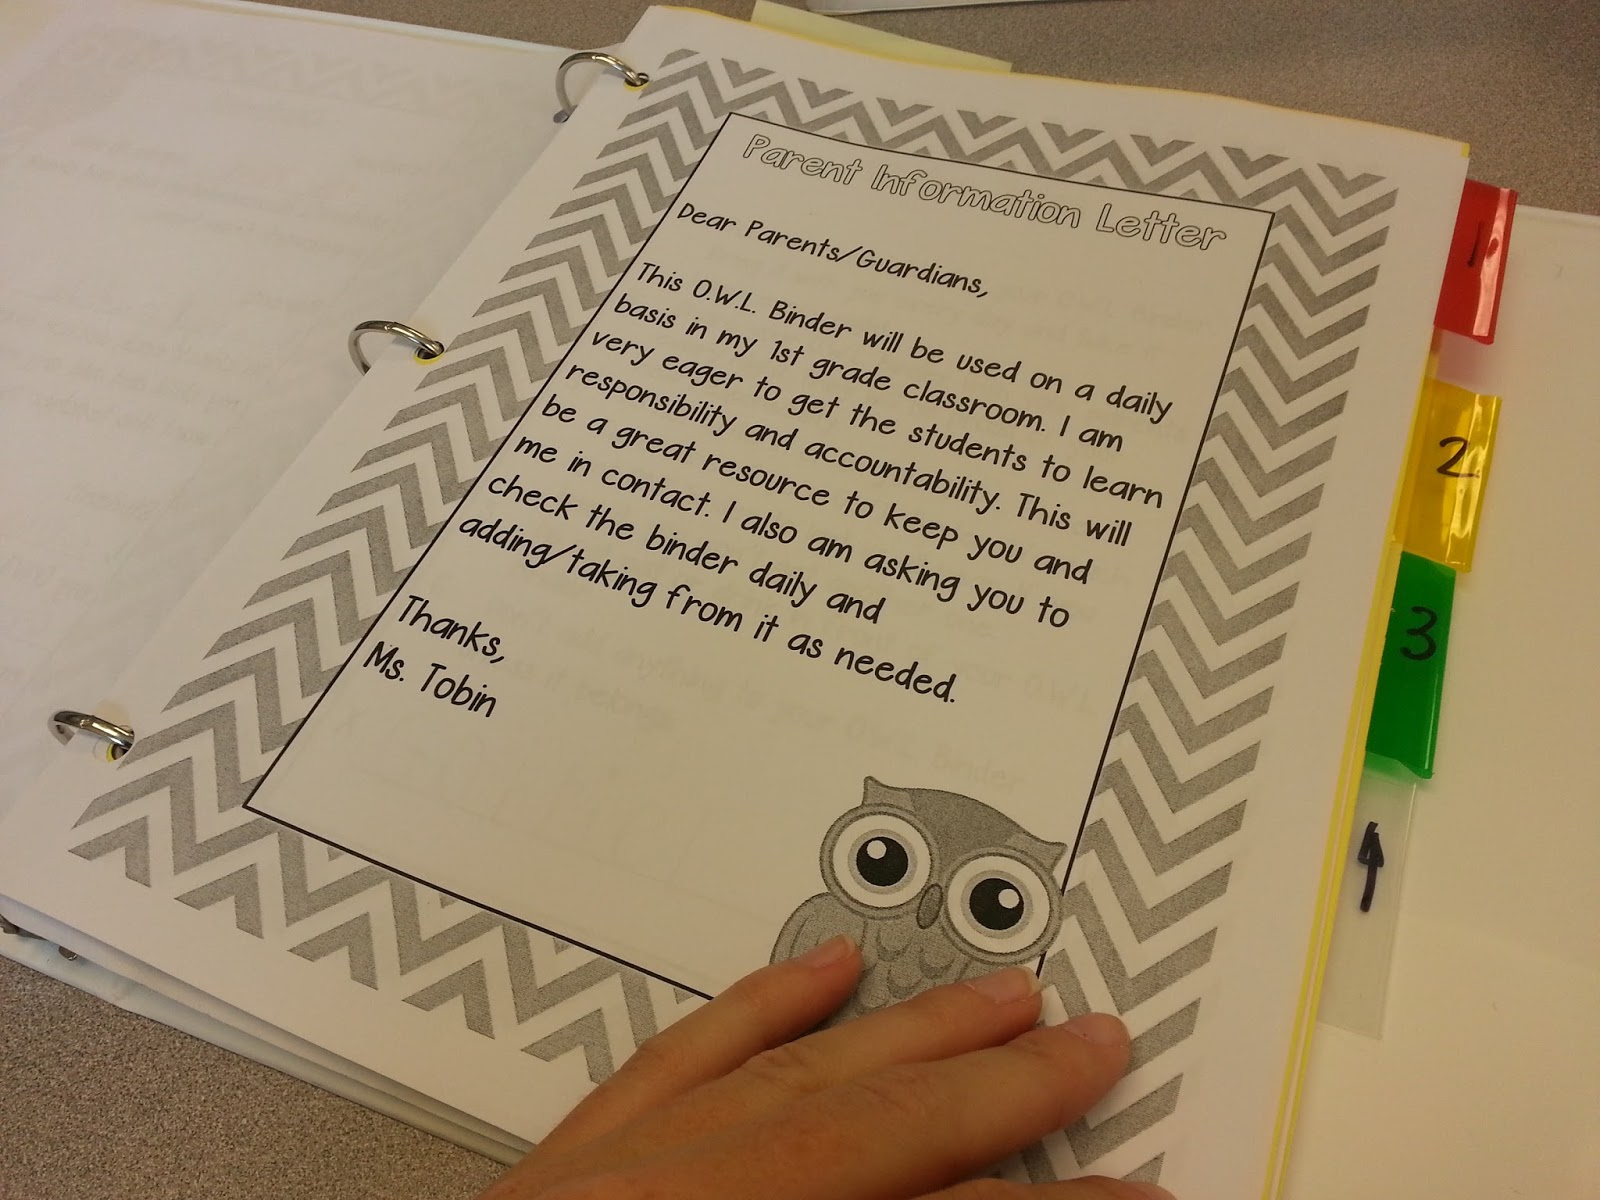 Parent Information Letter
Dear Parents/Guardians,
This O.W.L. Binder will be used on a daily
basis in my 1st grade classroom. I am
very eager to get the students to learn
responsibility and accountability. This will
be a great resource to keep you and
me in contact. I also am asking you to
check the binder daily and
adding/taking from it as needed.
Thanks,
Ms. Tobin
1
2
3